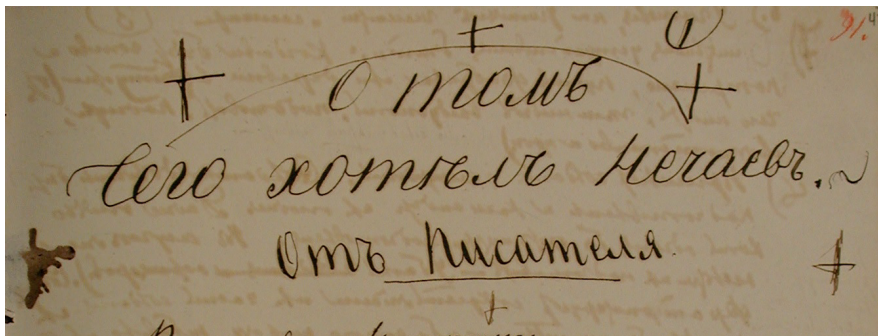 91.
О томъ
Чего хотѣлъ Нечаевъ.
Отъ Писателя.